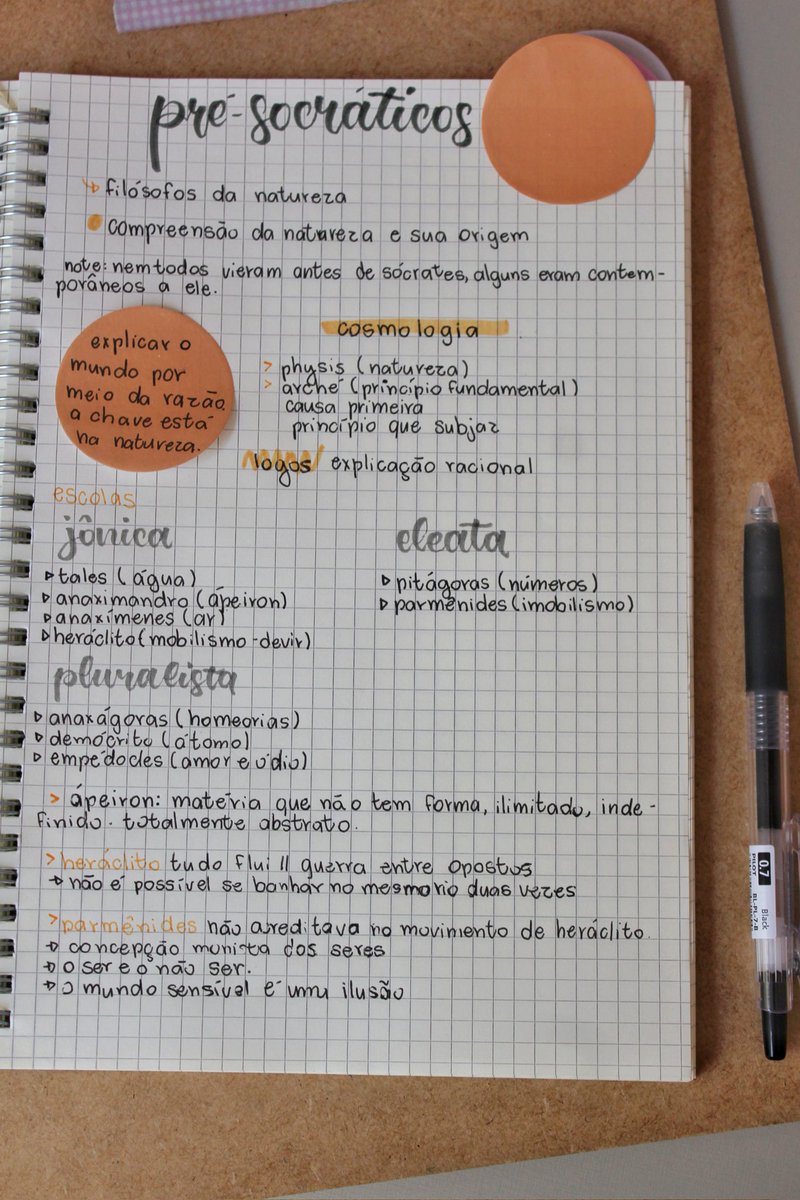 pré-socráticos
filósofos da natureza
compreensão da natureza e sua origem
note: nem todos vieram antes de sócrates, alguns eram contem-
porâneos a ele.
explicar o
mundo por
meio da razão.
a chave está
na natureza.
cosmologia
> physis (natureza)
> arché (princípio fundamental)
causa primeira
princípio que subjaz
logos explicação racional
escolas
jônica
tales (água)
anaximandro (ápeiron)
anaxímenes (ar)
heráclito (mobilismo-devir)
eleata
pitágoras (números)
parmênides (imobilismo)
pluralista
anaxágoras (homeorias)
demócrito (átomo)
empédocles (amor e ódio)
> ápeiron: matéria que não tem forma, ilimitado, inde-
finido. totalmente abstrato.
> heráclito tudo flui || guerra entre opostos
não é possível se banhar no mesmo rio duas vezes
> parmênides não acreditava no movimento de heráclito.
concepção monista dos seres
o ser e o não ser.
o mundo sensível é uma ilusão
0.7
Black
PILOT
BL-P1-7-B